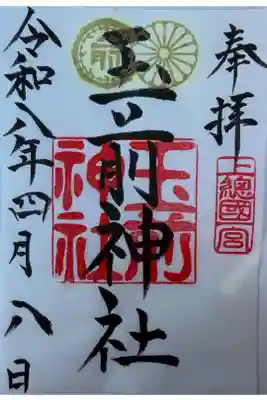 奉拝
上總國一宮
前
玉前神社
玉前神社
令和八年四月八日